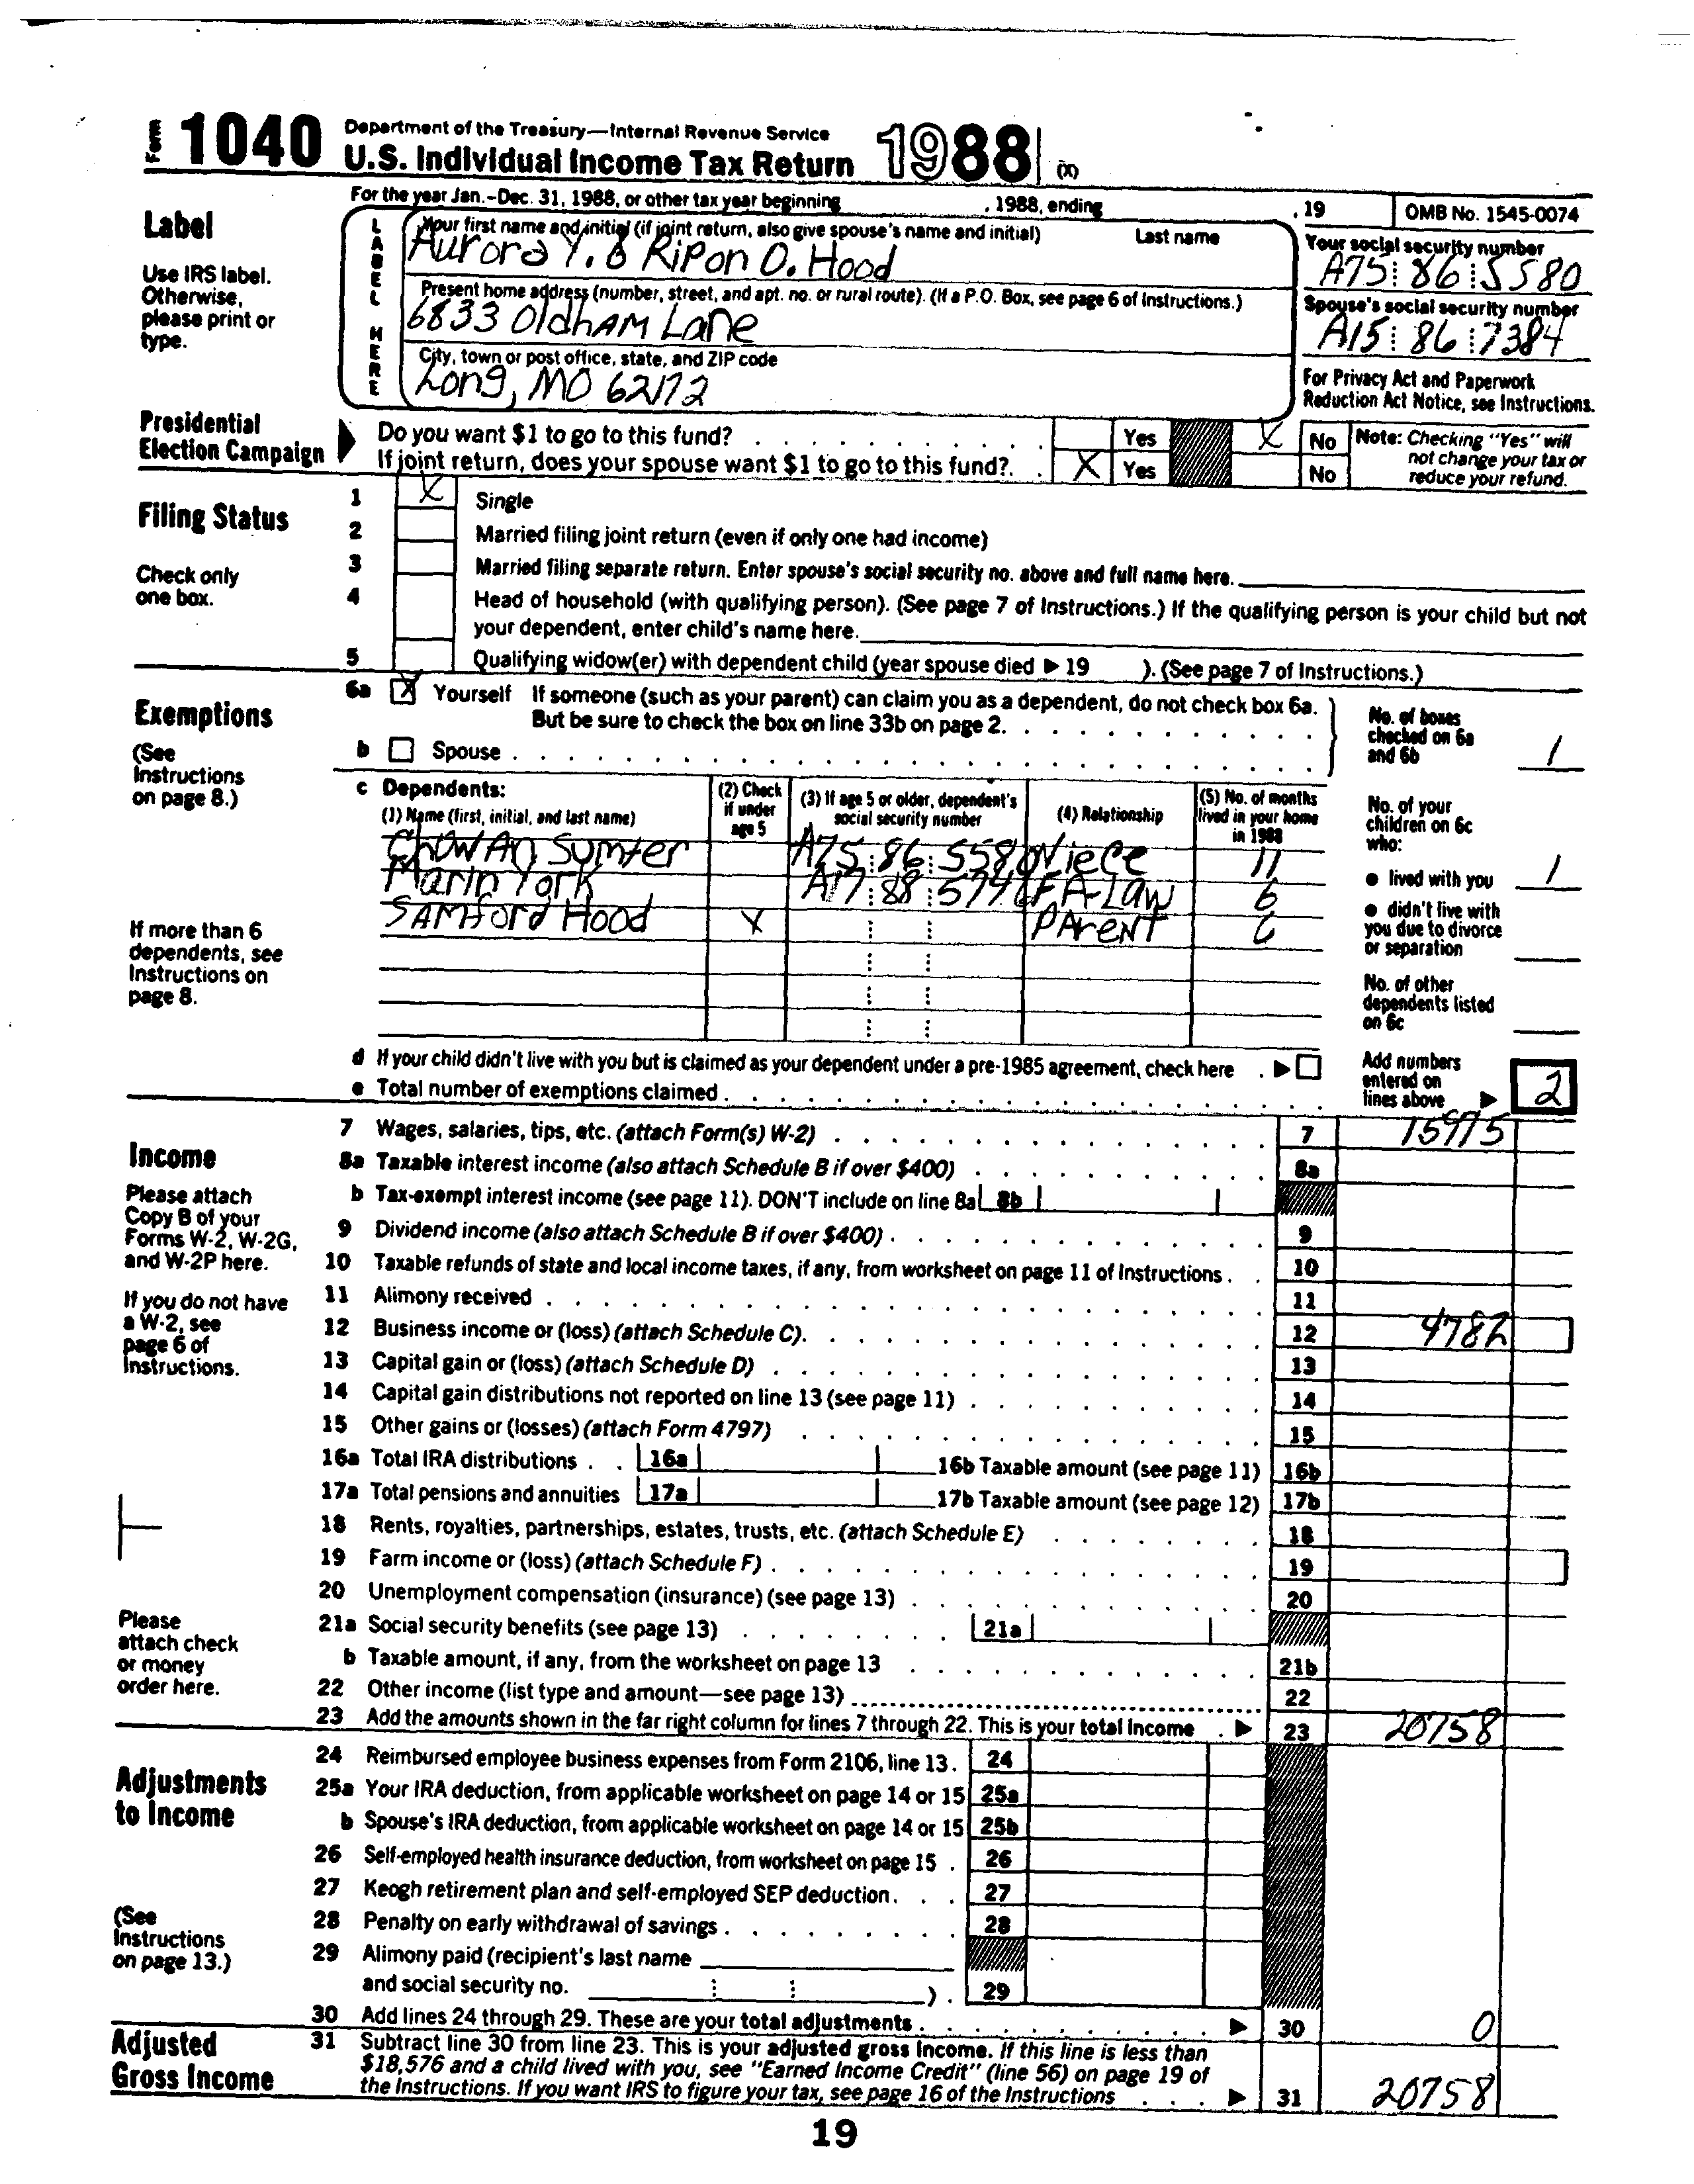 Form 1040 Department of the Treasury—Internal Revenue Service
U.S. Individual Income Tax Return 1988 (X)
For the year Jan.-Dec. 31, 1988, or other tax year beginning , 1988, ending , 19 OMB No. 1545-0074
Label
Use IRS label.
Otherwise,
please print or
type.
LABEL HERE
Your first name and initial (if joint return, also give spouse's name and initial) Last name
Aurora Y. & Ripon O. Hood
Your social security number
A75 86 5580
Present home address (number, street, and apt. no. or rural route). (If a P.O. Box, see page 6 of Instructions.)
6833 Oldham Lane
Spouse's social security number
A15 86 7384
City, town or post office, state, and ZIP code
Long, MO 62172
For Privacy Act and Paperwork
Reduction Act Notice, see Instructions.
Presidential
Election Campaign
Do you want $1 to go to this fund? Yes X No
If joint return, does your spouse want $1 to go to this fund? X Yes No
Note: Checking "Yes" will
not change your tax or
reduce your refund.
Filing Status
Check only
one box.
1 X Single
2 Married filing joint return (even if only one had income)
3 Married filing separate return. Enter spouse's social security no. above and full name here.
4 Head of household (with qualifying person). (See page 7 of Instructions.) If the qualifying person is your child but not
your dependent, enter child's name here.
5 Qualifying widow(er) with dependent child (year spouse died ▶ 19 ). (See page 7 of Instructions.)
Exemptions
(See
Instructions
on page 8.)
6a X Yourself If someone (such as your parent) can claim you as a dependent, do not check box 6a.
But be sure to check the box on line 33b on page 2.
b Spouse
No. of boxes
checked on 6a
and 6b 1
c Dependents:
(1) Name (first, initial, and last name)
(2) Check
if under
age 5
(3) If age 5 or older, dependent's
social security number
(4) Relationship
(5) No. of months
lived in your home
in 1988
Chowan Sumter A75 86 5580 Niece 11
Marin York A17 88 5746 FA-Law 6
Samford Hood X Parent 6
If more than 6
dependents, see
Instructions on
page 8.
No. of your
children on 6c
who:
● lived with you 1
● didn't live with
you due to divorce
or separation
No. of other
dependents listed
on 6c
d If your child didn't live with you but is claimed as your dependent under a pre-1985 agreement, check here ▶
e Total number of exemptions claimed
Add numbers
entered on
lines above ▶ 2
Income
Please attach
Copy B of your
Forms W-2, W-2G,
and W-2P here.
If you do not have
a W-2, see
page 6 of
Instructions.
Please
attach check
or money
order here.
7 Wages, salaries, tips, etc. (attach Form(s) W-2) 7 15975
8a Taxable interest income (also attach Schedule B if over $400) 8a
b Tax-exempt interest income (see page 11). DON'T include on line 8a 8b
9 Dividend income (also attach Schedule B if over $400) 9
10 Taxable refunds of state and local income taxes, if any, from worksheet on page 11 of Instructions 10
11 Alimony received 11
12 Business income or (loss) (attach Schedule C) 12 4782
13 Capital gain or (loss) (attach Schedule D) 13
14 Capital gain distributions not reported on line 13 (see page 11) 14
15 Other gains or (losses) (attach Form 4797) 15
16a Total IRA distributions 16a 16b Taxable amount (see page 11) 16b
17a Total pensions and annuities 17a 17b Taxable amount (see page 12) 17b
18 Rents, royalties, partnerships, estates, trusts, etc. (attach Schedule E) 18
19 Farm income or (loss) (attach Schedule F) 19
20 Unemployment compensation (insurance) (see page 13) 20
21a Social security benefits (see page 13) 21a
b Taxable amount, if any, from the worksheet on page 13 21b
22 Other income (list type and amount—see page 13) 22
23 Add the amounts shown in the far right column for lines 7 through 22. This is your total income ▶ 23 20758
Adjustments
to Income
(See
Instructions
on page 13.)
24 Reimbursed employee business expenses from Form 2106, line 13. 24
25a Your IRA deduction, from applicable worksheet on page 14 or 15 25a
b Spouse's IRA deduction, from applicable worksheet on page 14 or 15 25b
26 Self-employed health insurance deduction, from worksheet on page 15 26
27 Keogh retirement plan and self-employed SEP deduction 27
28 Penalty on early withdrawal of savings 28
29 Alimony paid (recipient's last name
and social security no. ) 29
30 Add lines 24 through 29. These are your total adjustments ▶ 30 0
Adjusted
Gross Income
31 Subtract line 30 from line 23. This is your adjusted gross income. If this line is less than
$18,576 and a child lived with you, see "Earned Income Credit" (line 56) on page 19 of
the Instructions. If you want IRS to figure your tax, see page 16 of the Instructions ▶ 31 20758
19